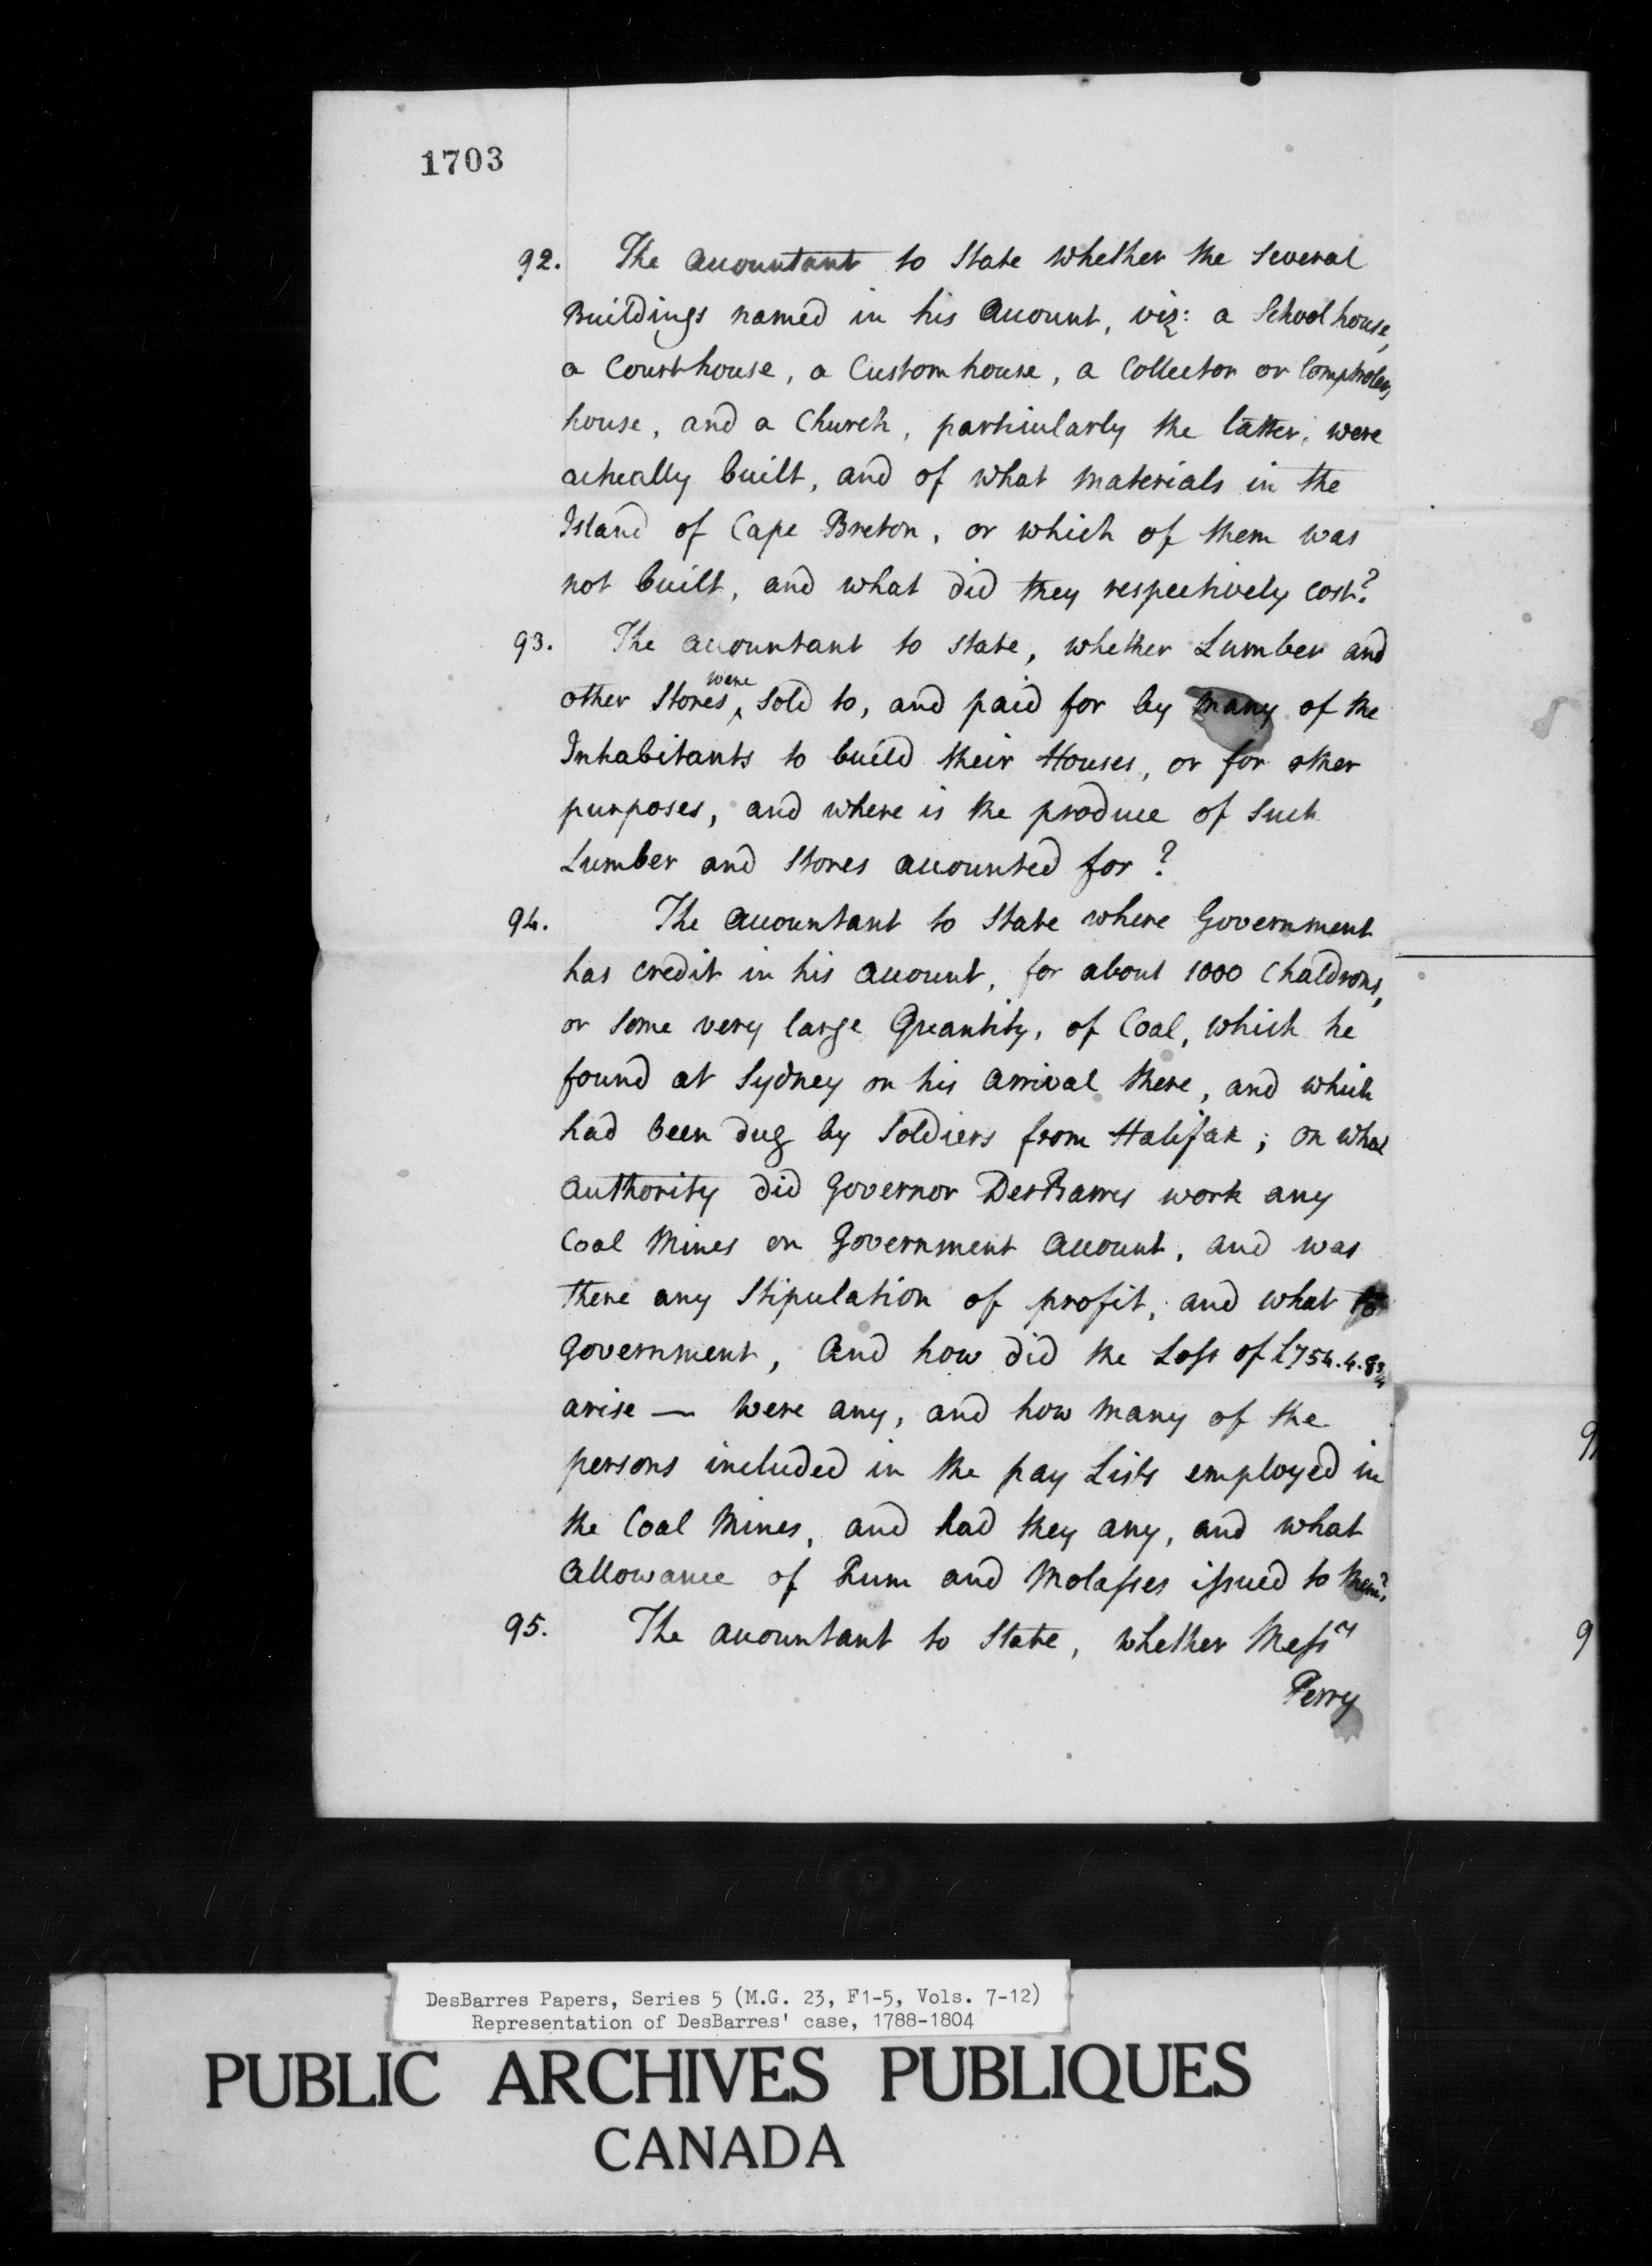 1703
92. The Accountant to State whether the Several
Buildings named in his Account, viz: a Schoolhouse,
a Courthouse, a Customhouse, a Collector or Comptrolers
house, and a Church, particularly the latter, were
actually built, and of what Materials in the
Island of Cape Breton, or which of them was
not built, and what did they respectively cost?
93. The accountant to state, whether Lumber and
other Stores were sold to, and paid for by many of the
Inhabitants to build their Houses, or for other
purposes, and where is the produce of Such
Lumber and Stores accounted for?
94. The Accountant to State where Government
has credit in his Account, for about 1000 Chaldrons,
or Some very large Quantity, of Coal, which he
found at Sydney on his Arrival there, and which
had been dug by Soldiers from Halifax; on what
Authority did Governor DesBarres work any
Coal Mines on Government Account, and was
there any Stipulation of profit, and what to
Government, And how did the Loss of £754.4.8¾
arise — Were any, and how Many of the
persons included in the pay Lists employed in
the Coal Mines, and had they any, and what
Allowance of Rum and Molasses issued to them?
95. The accountant to State, whether Messrs
Perry
9
9
DesBarres Papers, Series 5 (M.G. 23, F1-5, Vols. 7-12)
Representation of DesBarres' case, 1788-1804
PUBLIC ARCHIVES PUBLIQUES
CANADA